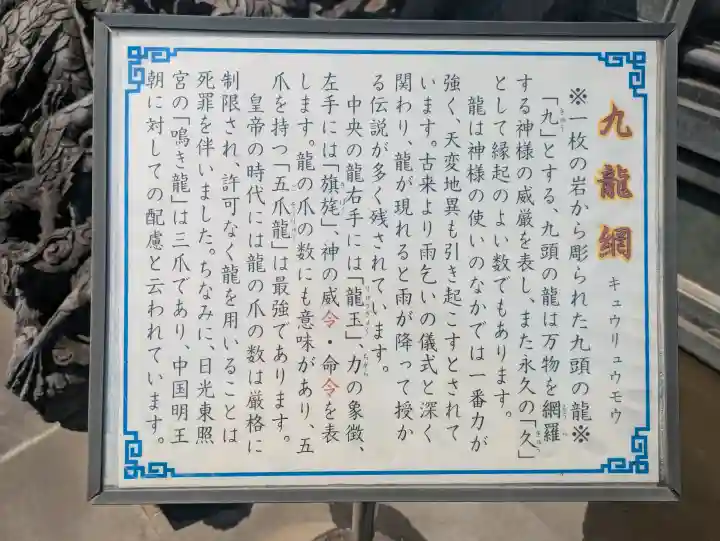 九龍網 キュウリュウモウ
※一枚の岩から彫られた九頭の龍※
「九」とする、九頭の龍は万物を網羅
する神様の威厳を表し、また永久の「久」
として縁起のよい数でもあります。
龍は神様の使いのなかでは一番力が
強く、天変地異も引き起こすとされて
います。古来より雨乞いの儀式と深く
関わり、龍が現れると雨が降って授か
る伝説が多く残されています。
中央の龍右手には「龍玉」、力の象徴、
左手には「旗旄」、神の威令・命令を表
します。龍の爪の数にも意味があり、五
爪を持つ「五爪龍」は最強であります。
皇帝の時代には龍の爪の数は厳格に
制限され、許可なく龍を用いることは
死罪を伴いました。ちなみに、日光東照
宮の「鳴き龍」は三爪であり、中国明王
朝に対しての配慮と云われています。